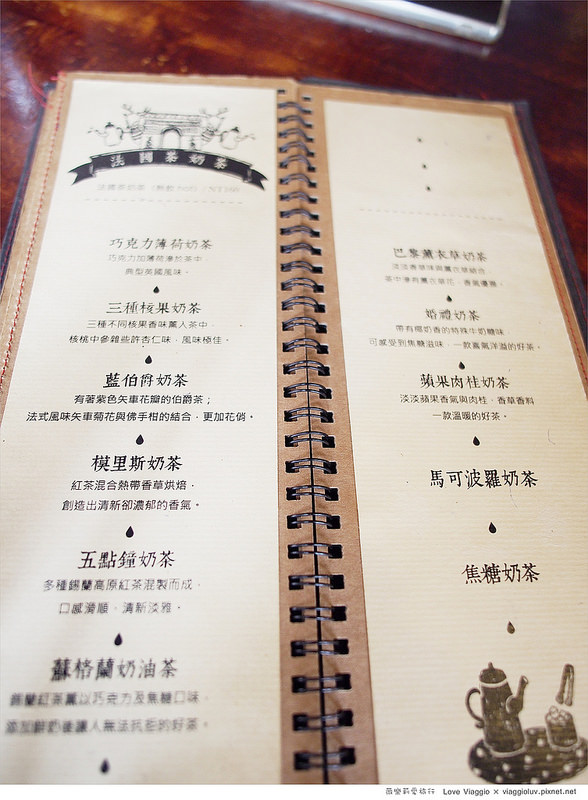 法國茶奶茶
巧克力薄荷奶茶
巧克力加薄荷滲於茶中，
典型英國風味。
三種核果奶茶
三種不同核果香味薰人茶中，
核桃中參雜些許杏仁味，風味極佳。
藍伯爵奶茶
有著紫色矢車花瓣的伯爵茶；
法式風味矢車菊花與佛手柑的結合，更加花俏。
模里斯奶茶
紅茶混合熱帶香草烘焙，
創造出清新卻濃郁的香氣。
五點鐘奶茶
多種錫蘭高原紅茶混製而成，
口感滑順，清新淡雅。
蘇格蘭奶油茶
錫蘭紅茶薰以巧克力及焦糖口味，
添加鮮奶後讓人無法抗拒的好茶。
巴黎薰衣草奶茶
淡淡香草味與薰衣草結合，
茶中滲有薰衣草花，香氣優雅。
婚禮奶茶
帶有椰奶香的特殊牛奶糖味
可感受到焦糖滋味，一款喜氣洋溢的好茶。
蘋果肉桂奶茶
淡淡蘋果香氣與肉桂，香草香料
一款溫暖的好茶。
馬可波羅奶茶
焦糖奶茶
Love Viaggio × viaggioluv.pixnet.net